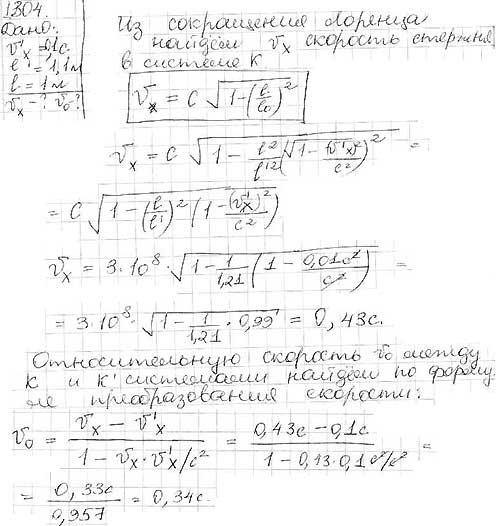 1304.
Дано:
v'ₓ = 0,1c
l' = 1,1м
l = 1м
vₓ - ? v₀?
Из сокращения Лоренца
найдём vₓ скорость стержня
в системе K
vₓ = c √(1-(l/l₀)²)
vₓ = c √(1 - l²/l'² (√(1 - (v'ₓ)²/c²))²) =
= c √(1 - (l/l')² (1 - (v'ₓ)²/c²))
vₓ = 3·10⁸ · √(1 - 1/1,21 (1 - 0,01c²/c²)) =
= 3·10⁸ · √(1 - 1/1,21 · 0,99) = 0,43c.
Относительную скорость v₀ между
K и K' системами найдём по форму-
ле преобразования скорости:
v₀ = (vₓ - v'ₓ)/(1 - vₓ·v'ₓ/c²) = (0,43c - 0,1c)/(1 - 0,43·0,1c²/c²) =
= 0,33c/0,957 = 0,34c.